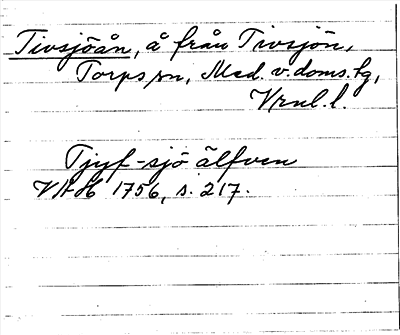 Tivsjöån, å från Tivsjön,
Torps sn, Med. v. doms. tg,
Vrnl. l.
Tjuf-sjö älfven
VAH 1756, s. 217.